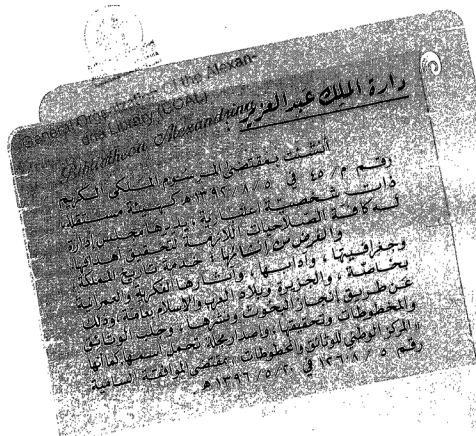 General Organization of the Alexan-
dria Library (GOAL)
Bibliotheca Alexandrina
دارة الملك عبد العزيز
أنشئت بمقتضى المرسوم الملكي الكريم
رقم م/٤٥ في ٥/٨/١٣٩٢هـ كهيئة مستقلة
ذات شخصية اعتبارية، يديرها مجلس إدارة
له كافة الصلاحيات اللازمة لتحقيق أهدافها
والغرض من إنشائها: خدمة تاريخ المملكة
وجغرافيتها، وآدابها، وآثارها الفكرية والعمرانية
بخاصة، والجزيرة وبلاد العرب والإسلام بعامة، وذلك
عن طريق إنجاز البحوث ونشرها، وجلب الوثائق
والمخطوطات وتحقيقها، وإصدار مجلة تحمل اسمها كما أنها
المركز الوطني للوثائق والمخطوطات بمقتضى الموافقة السامية
رقم ٥/١٢٦٠٨ في ٢٠/٥/١٣٩٦هـ.